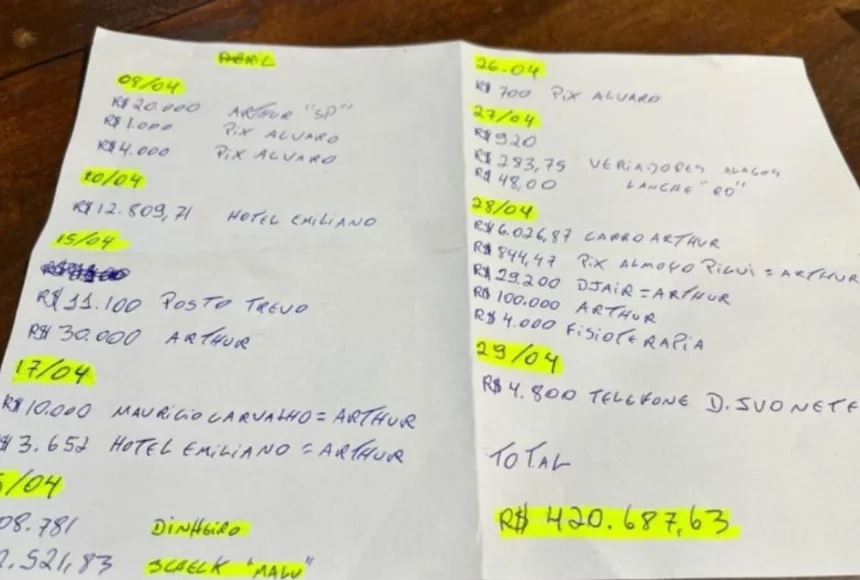 ABRIL
09/04
R$ 20.000 ARTHUR "SP"
R$ 1.000 PIX ALVARO
R$ 4.000 PIX ALVARO
10/04
R$ 12.809,71 HOTEL EMILIANO
15/04
R$ 11.100 POSTO TREVO
R$ 30.000 ARTHUR
17/04
R$ 10.000 MAURICIO CARVALHO = ARTHUR
$ 3.652 HOTEL EMILIANO = ARTHUR
/04
08.781 DINHEIRO
2.521,83 "MALU"
26.04
R$ 700 PIX ALVARO
27/04
R$ 920
R$ 283,75 VERIADORES
R$ 48,00 LANCHE "RO"
28/04
R$ 6.026,87 CARRO ARTHUR
R$ 844,47 PIX ALMOÇO = ARTHUR
R$ 29.200 DJAIR = ARTHUR
R$ 100.000 ARTHUR
R$ 4.000 FISIOTERAPIA
29/04
R$ 4.800 TELEFONE D. IVONETE
TOTAL
R$ 420.687,63